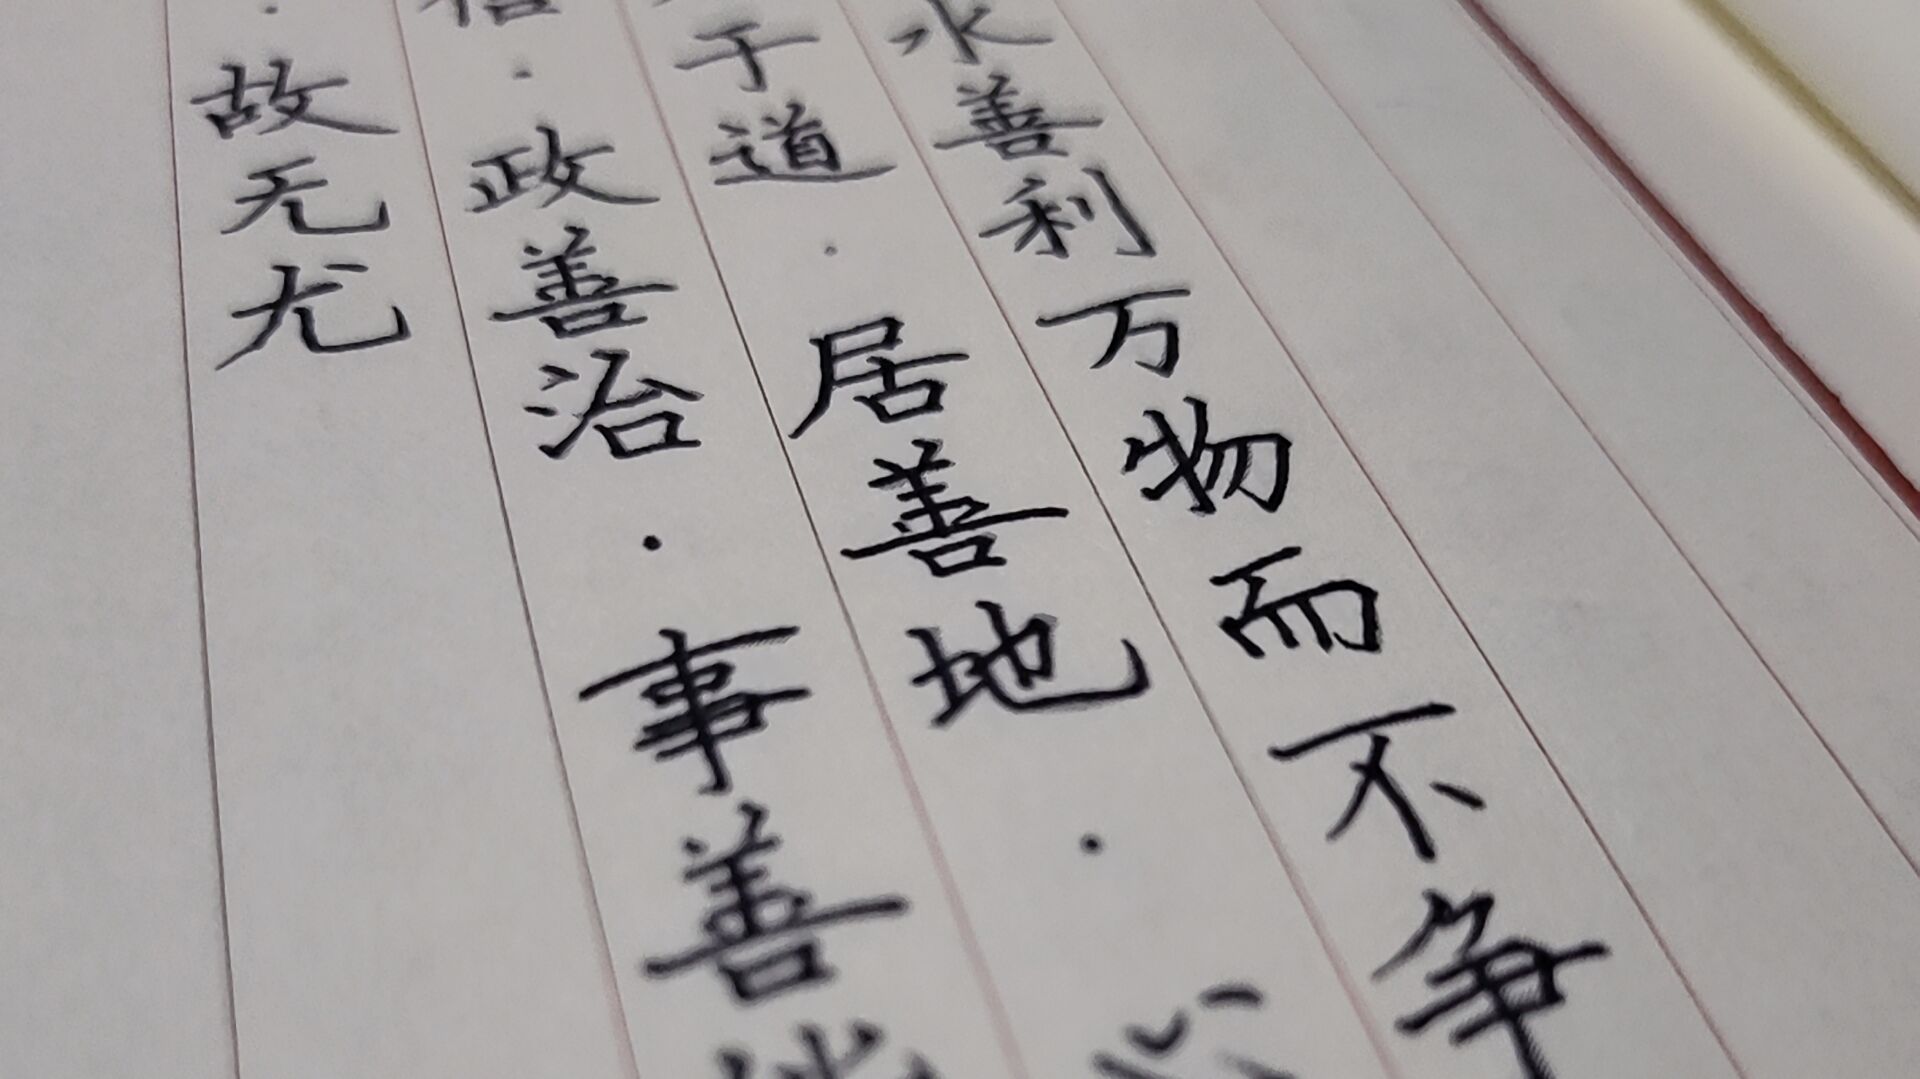 水善利万物而不争
于道·居善地·心
信·政善治·事善能
·故无尤